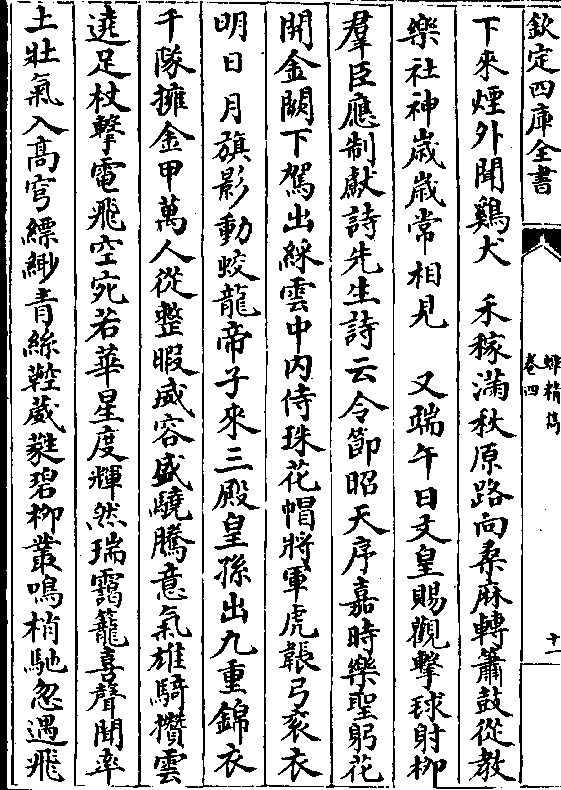 欽定四庫全書
蟫精雋
卷四
十一
下來煙外聞雞犬　禾稼滿秋原路向桑麻轉簫鼓從教
樂社神歳歳常相見　又端午日文皇賜觀擊球射柳
羣臣應制獻詩先生詩云令節昭天序嘉時樂聖躬花
開金闕下駕出綵雲中内侍珠花帽將軍虎韔弓衮衣
明日月旗影動蛟龍帝子來三殿皇孫出九重錦衣
千隊擁金甲萬人從整暇威容盛驍騰意氣雄騎攢雲
遶足杖擊電飛空宛若華星度輝然瑞靄籠喜聲聞率
土壯氣入髙穹縹緲青絲鞚葳蕤碧柳叢鳴梢馳忽遇飛